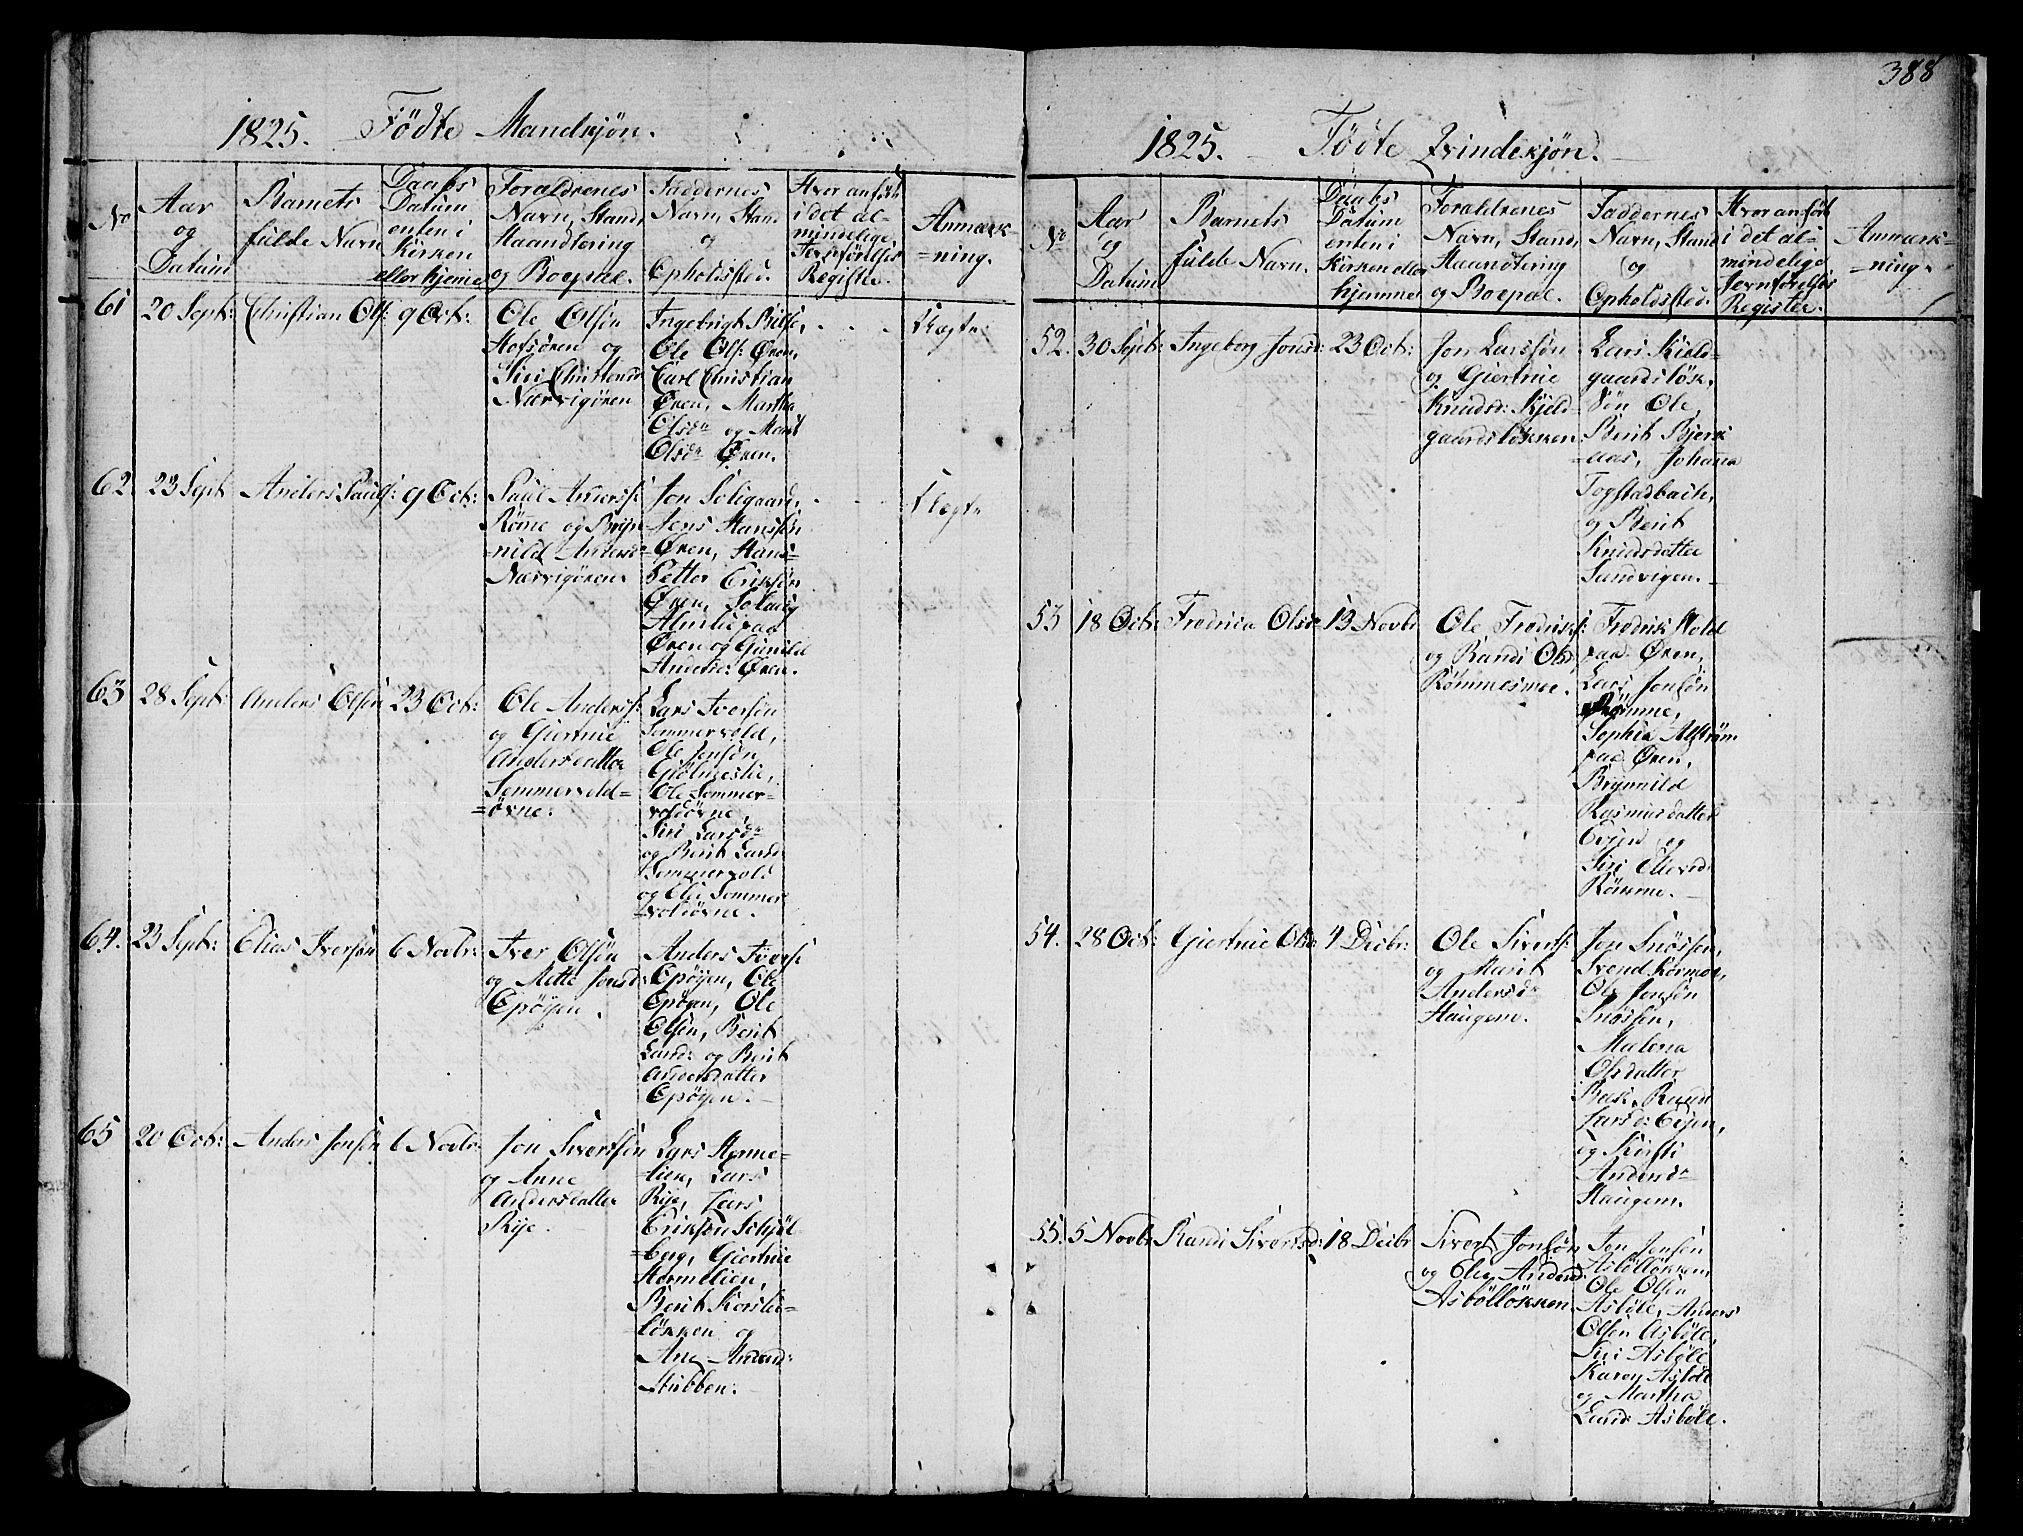 388
1825. Födte Mandkjön.
No
Aar
og
Datum
Barnets
fulde Navn
Daabs
Datum
enten i
Kirken
eller hjemme
Forældrenes
Navn, Stand
Haandtering
og Boepæl.
Faddernes
Navn, Stand
og
Opholdssted.
Hvor anfört
i det al-
mindelige
Jevnförelses
Register.
Anmærk-
=ning.
61 20 Sept: Christian Ols: 9 Oct:
Ole Olsön
Hofsören og
Siri Christensd
Nærvigören
Ingebrigt
Ole Ols: Ören,
Carl Christian
Ören, Martha
Olsdr og Marit
Olsdr Ören.
62. 23 Sept Anders Pauls: 9 Oct:
Paul Anders:
Römme og Bryn
=nild Andersd
Nærvigören
Jon Soligaard,
Jens Hansön
Ören, Hans
Petter Eriksön
Ören, Solvig
paa
Ören og Gunild
Andersd: Ören.
63 28 Sept: Anders Olsön 23 Oct:
Ole Anders:
og Giertrue
Andersdatter
Sommervold=
=övne.
Lars Iversön
Sommervold,
Ole Jonsön
Giölmeslie,
Ole Sommer-
voldövne,
Siri Larsdr
og Berit Larsd
Sommervold
og Eli Sommer
=voldövne.
64. 23 Sept: Elias Iversön 6 Novbr:
Iver Olsön
og Mette Jonsd:
Epöyen.
Anders Ivers:
Epöyen, Ole
Epöyen, Ole
Olsön, Berit
Larsd: og Berit
Andersdatter
Epöyen.
65 20 Oct: Anders Jonsön 6 Novbr
Jon Sivertsön
og Anne
Andersdatter
Rije.
Lars Hamme-
=lien, Lars
Rije, Lars
Eriksön
=berg, Giertrue
Hermelien,
Berit Korslie-
=lökken og
Ane
Stubben.
1825. Födte Qvindekjön.
No
Aar
og
Datum
Barnets
fulde Navn.
Daabs
Datum
enten i
Kirken eller
hjemme
Forældrenes
Navn, Stand,
Haandtering
og Boepæl.
Faddernes
Navn, Stand
og
Opholdssted.
Hvor anfört
i det al-
mindelige
Jevnförelses
Register.
Anmærk-
=ning.
52. 30 Sept: Ingeborg Jonsd: 23 Oct:
Jon Larssön
og Giertrue
Knudsd: Kjeld
gaardslökken
Lars Kield-
gaardslök,
Sön Ole,
Berit Bjerk
=aas, Johana
Togstadbach,
og Berit
Knudsdatter
Sandvigen.
53 18 Octbr Fredrica Olsd: 13 Novbr
Ole Fredriks:
og Randi Olsd
Römmesmoe.
Fredrik Hold
paa Ören,
Lars Jonsön
Römme,
Sophia Alström
paa Ören,
Brynnild
Rasmusdatter
Evjen og
Siri Ellevsd
Römme.
54. 28 Oct: Giertrue Olsd 4 Decbr:
Ole Siverts:
og Marit
Andersdr
Haugem.
Jon Snössen,
Svend Kormoe,
Ole Jonsön
Snössen,
Malena
Olsdatter
Bæk, Randi
Larsd: Evjen,
og Kirsti
Andersdr
Haugem.
55. 5 Novbr Randi Sivertsd: 18 Decbr
Sivert Jonsön
og Eli Andersd
Asböllökken
Jon Jonsön
Asböllökken,
Ole Olsön
Asböle, Anders
Olsön Asböle,
Siri Asböle
Karen Asböle
og Martha
Larsd: Asböle.